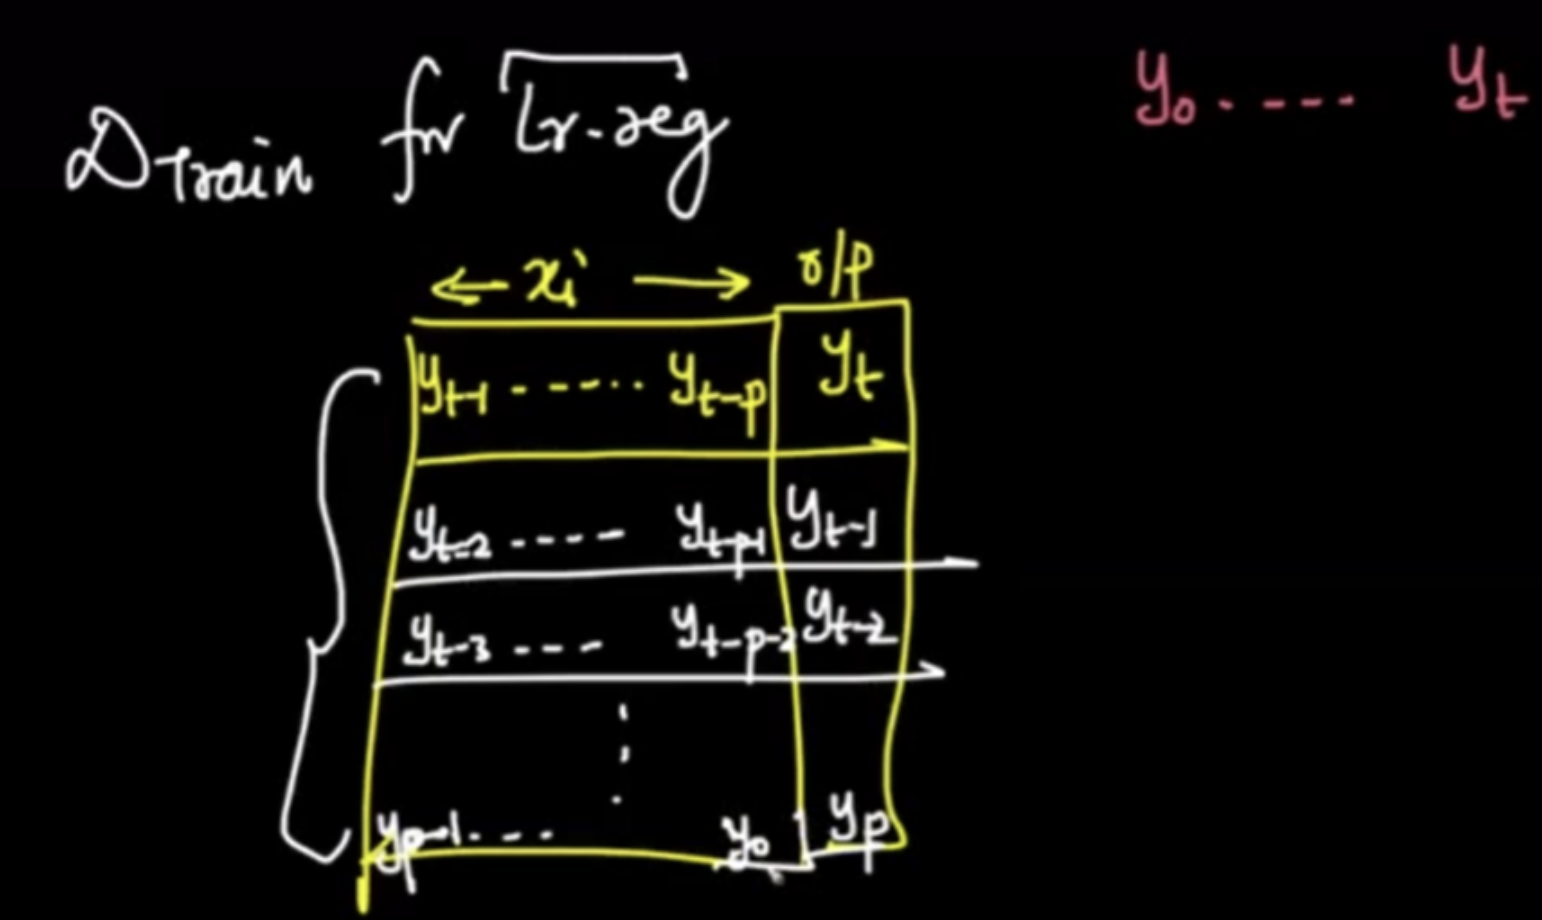 D_Train for Lr-reg y_0 ..... y_t
← x_i → o/p
y_t-1 ------.. y_t-p y_t
y_t-2 ----- y_t-p-1 y_t-1
y_t-3 ---- y_t-p-2 y_t-2
⋮
y_p-1 ---- y_0 y_p